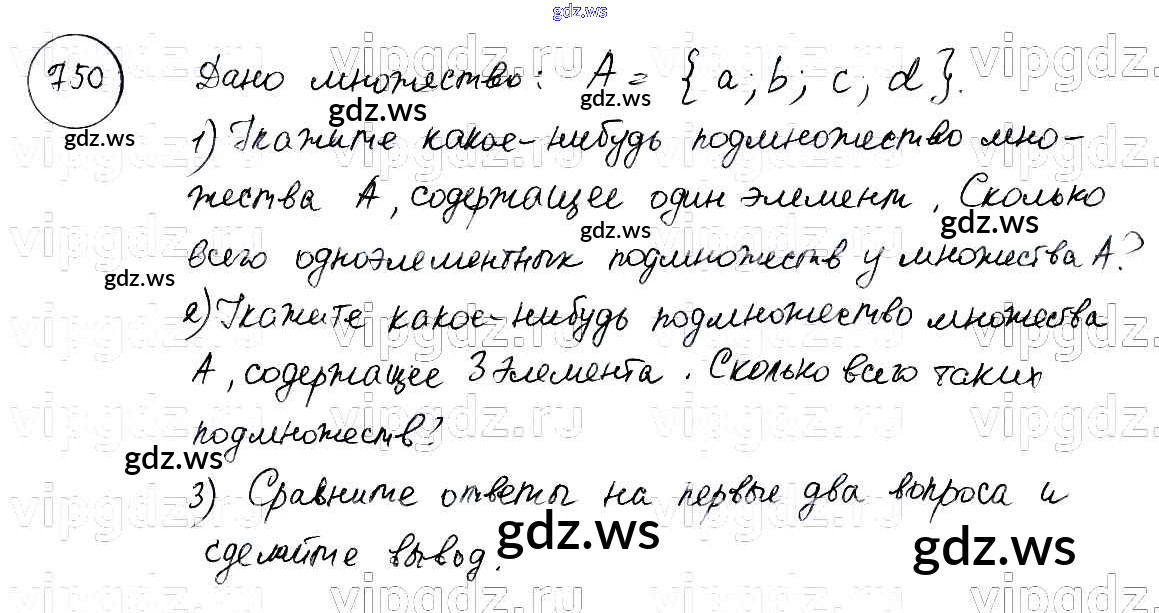 gdz.ws
750 Дано множество: A = {a; b; c; d}.
1) Укажите какое-нибудь подмножество мно-
жества A, содержащее один элемент. Сколько
всего одноэлементных подмножеств у множества A?
2) Укажите какое-нибудь подмножество множества
A, содержащее 3 элемента. Сколько всего таких
подмножеств?
3) Сравните ответы на первые два вопроса и
сделайте вывод.
gdz.ws
gdz.ws
gdz.ws
gdz.ws
gdz.ws
gdz.ws
gdz.ws
gdz.ws
gdz.ws
gdz.ws
vipgdz.ru
vipgdz.ru
vipgdz.ru
vipgdz.ru
vipgdz.ru
vipgdz.ru